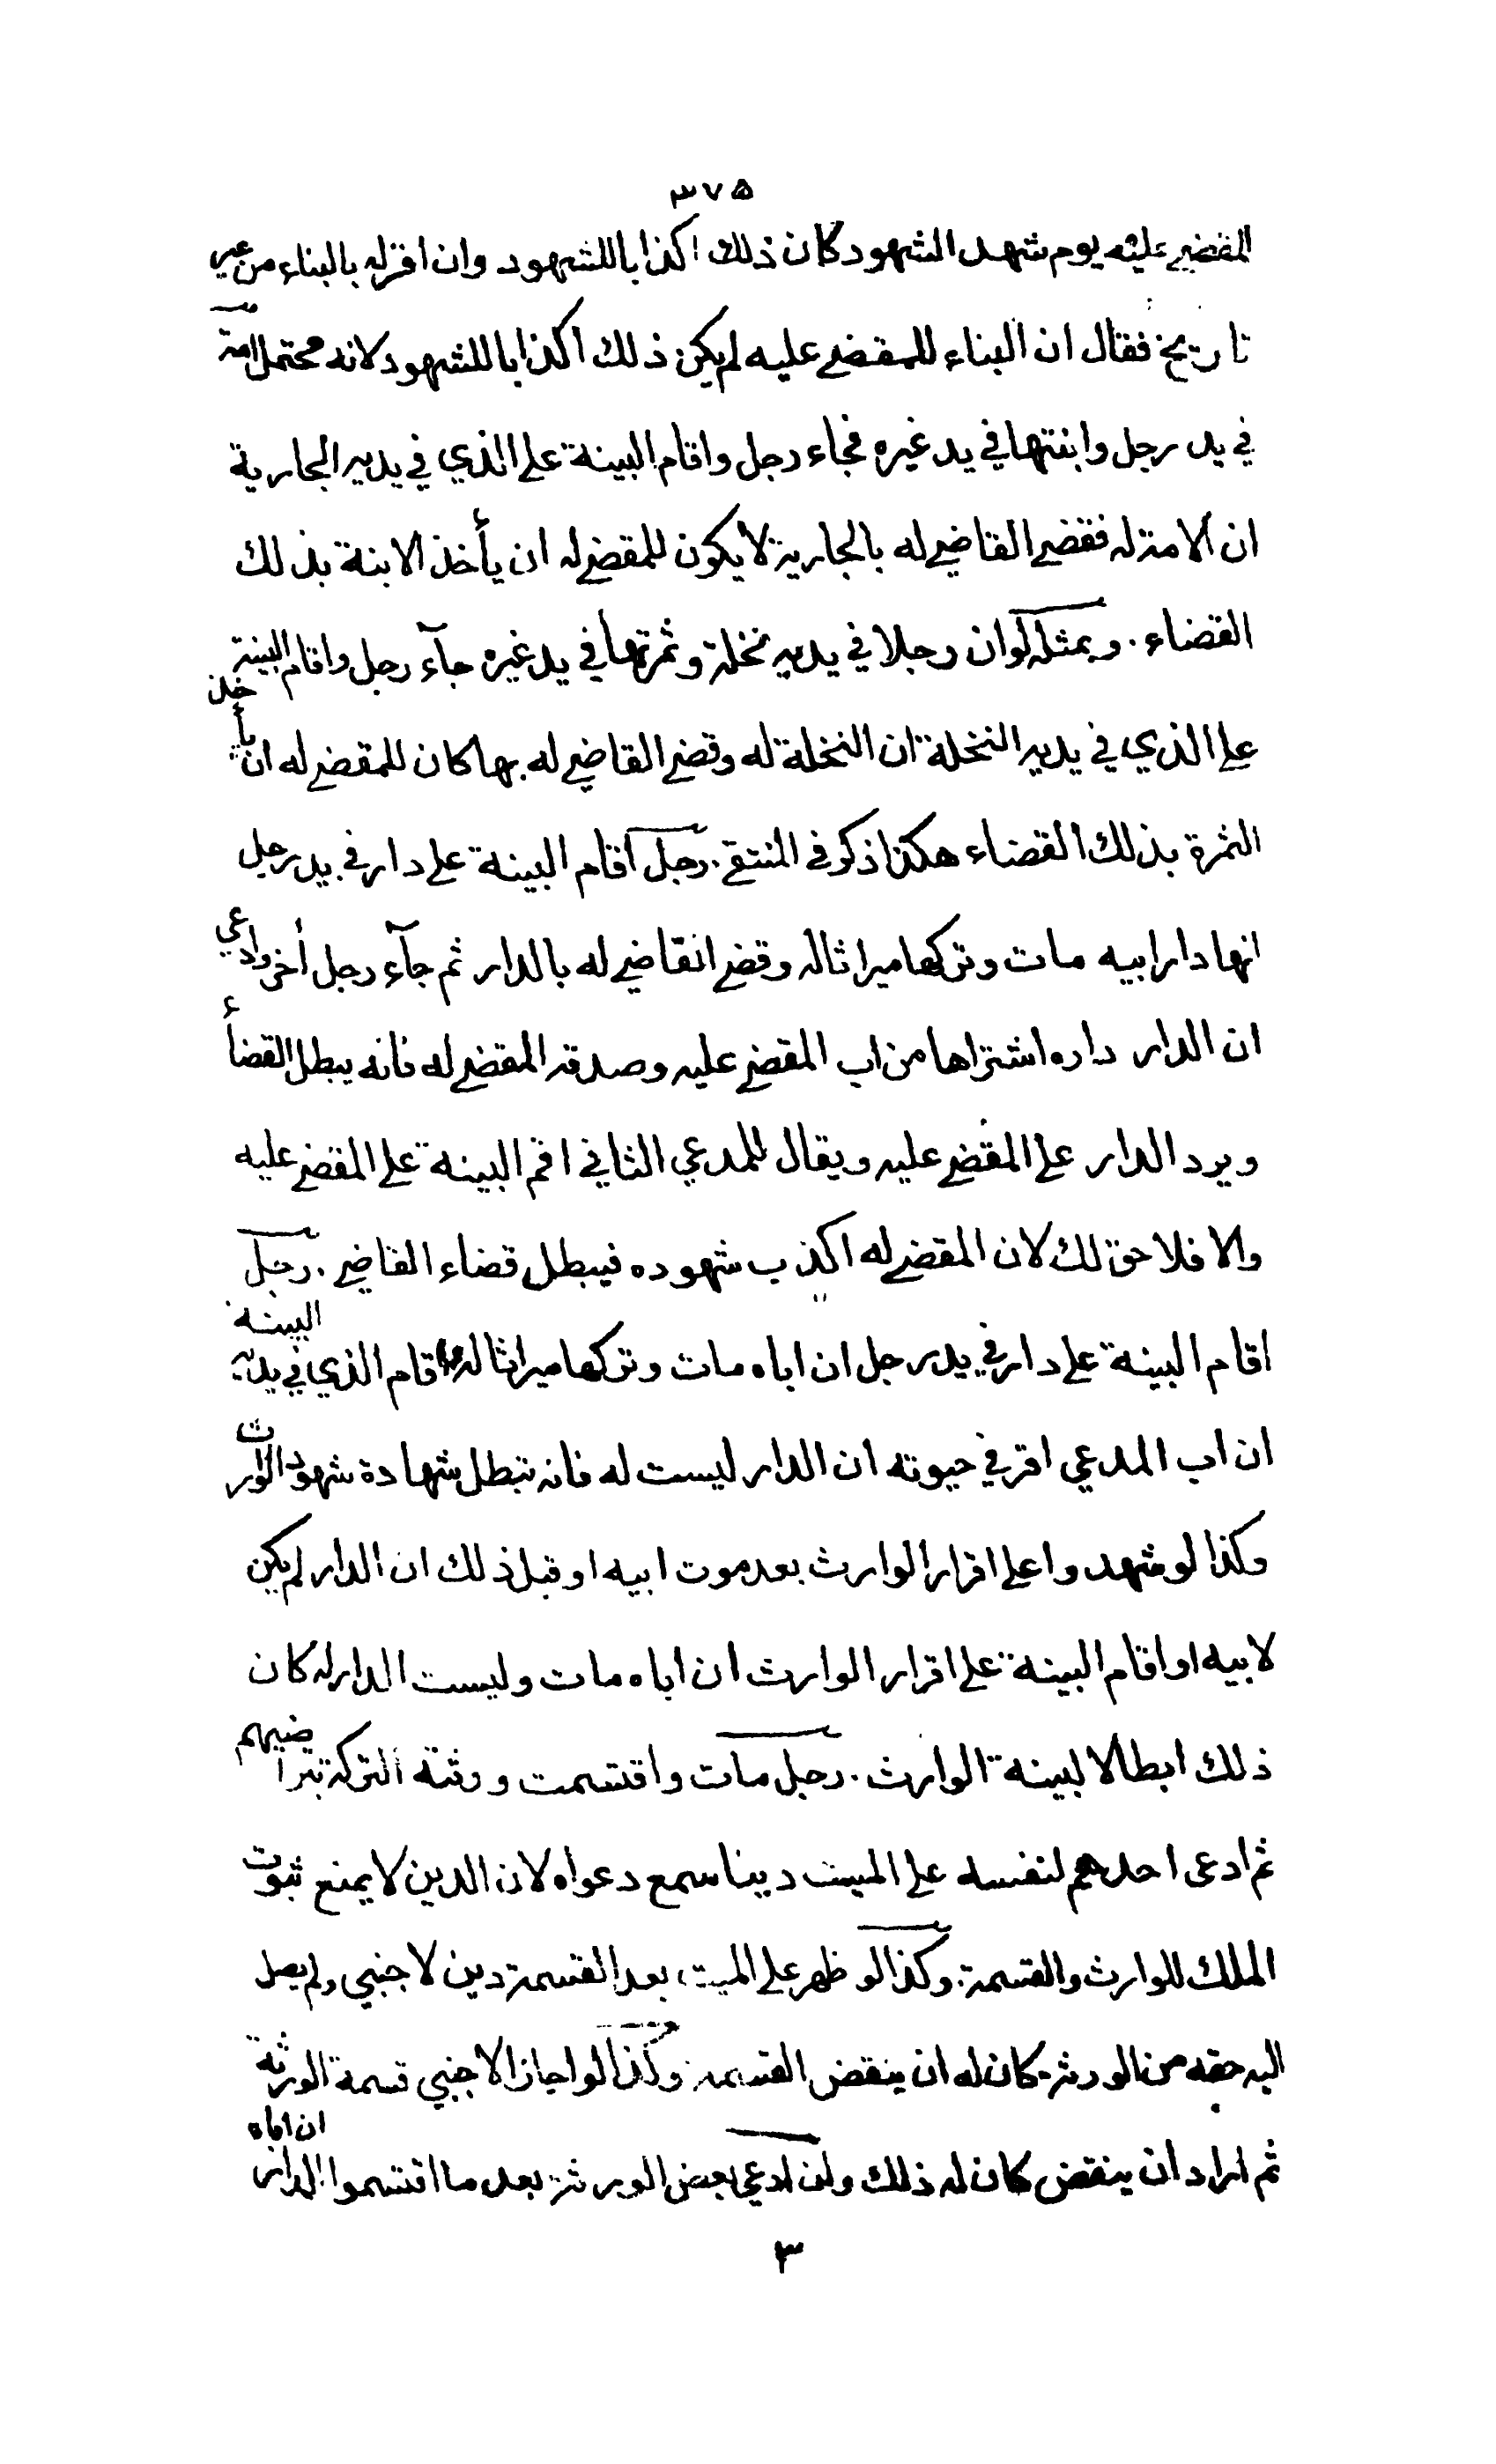 ٣٧٥
المقضي عليه يوم شهد الشهود كان ذلك اكذابا للشهود وان اقر له بالبناء من غير
تاريخ فقال ان البناء للمقضي عليه لم يكن ذلك اكذابا للشهود لانه محتمل امة
في يد رجل وابنتها في يد غيره فجاء رجل واقام البينة على الذي في يديه الجارية
ان الامة له فقضى القاضي له بالجارية لا يكون للمقضي له ان يأخذ الابنة بذلك
القضاء . وبمثله لو ان رجلا في يديه نخلة وثمرتها في يد غيره جآء رجل واقام البينة
على الذي في يديه النخلة ان النخلة له وقضى القاضي له بها كان للمقضي له ان يأخذ
الثمرة بذلك القضاء هكذا ذكر في المنتقى . رجل اقام البينة على دار في يد رجل
انها دار ابيه مات وتركها ميراثا له وقضى القاضي له بالدار ثم جآء رجل أخر وادعي
ان الدار داره اشتراها من اب المقضي عليه وصدقه المقضي له فانه يبطل القضأ
ويرد الدار على المقضي عليه ويقال للمدعي الثاني اقم البينة على المقضي عليه
والا فلا حق لك لان المقضي له اكذب شهوده فيبطل قضاء القاضي . رجل
اقام البينة على دار في يد رجل ان اباه مات وتركها ميراثا له واقام الذي في يديه البينة
ان اب المدعي اقر في حيوته ان الدار ليست له فانه تبطل شهادة شهود الوارث
وكذا لو شهدوا على اقرار الوارث بعد موت ابيه او قبل ذلك ان الدار لم يكن
لابيه او اقام البينة على اقرار الوارث ان اباه مات وليست الدار له كان
ذلك ابطالا لبينة الوارث . رجل مات واقتسمت ورثته التركة بتراضيهم
ثم ادعى احدهم لنفسه على الميت دينا سمع دعواه لان الدين لا يمنع ثبوت
الملك للوارث والقسمة . وكذا لو ظهر على الميت بعد القسمة دين لاجنبي ولم يصل
اليه حقه من الورثة كان له ان ينقض القسمة وكذا لو اجاز الاجنبي قسمة الورثة
ثم اراد ان ينقض كان له ذلك ولو ادعي بعض الورثة بعد ما اقتسموا الدار ان اباه
٣